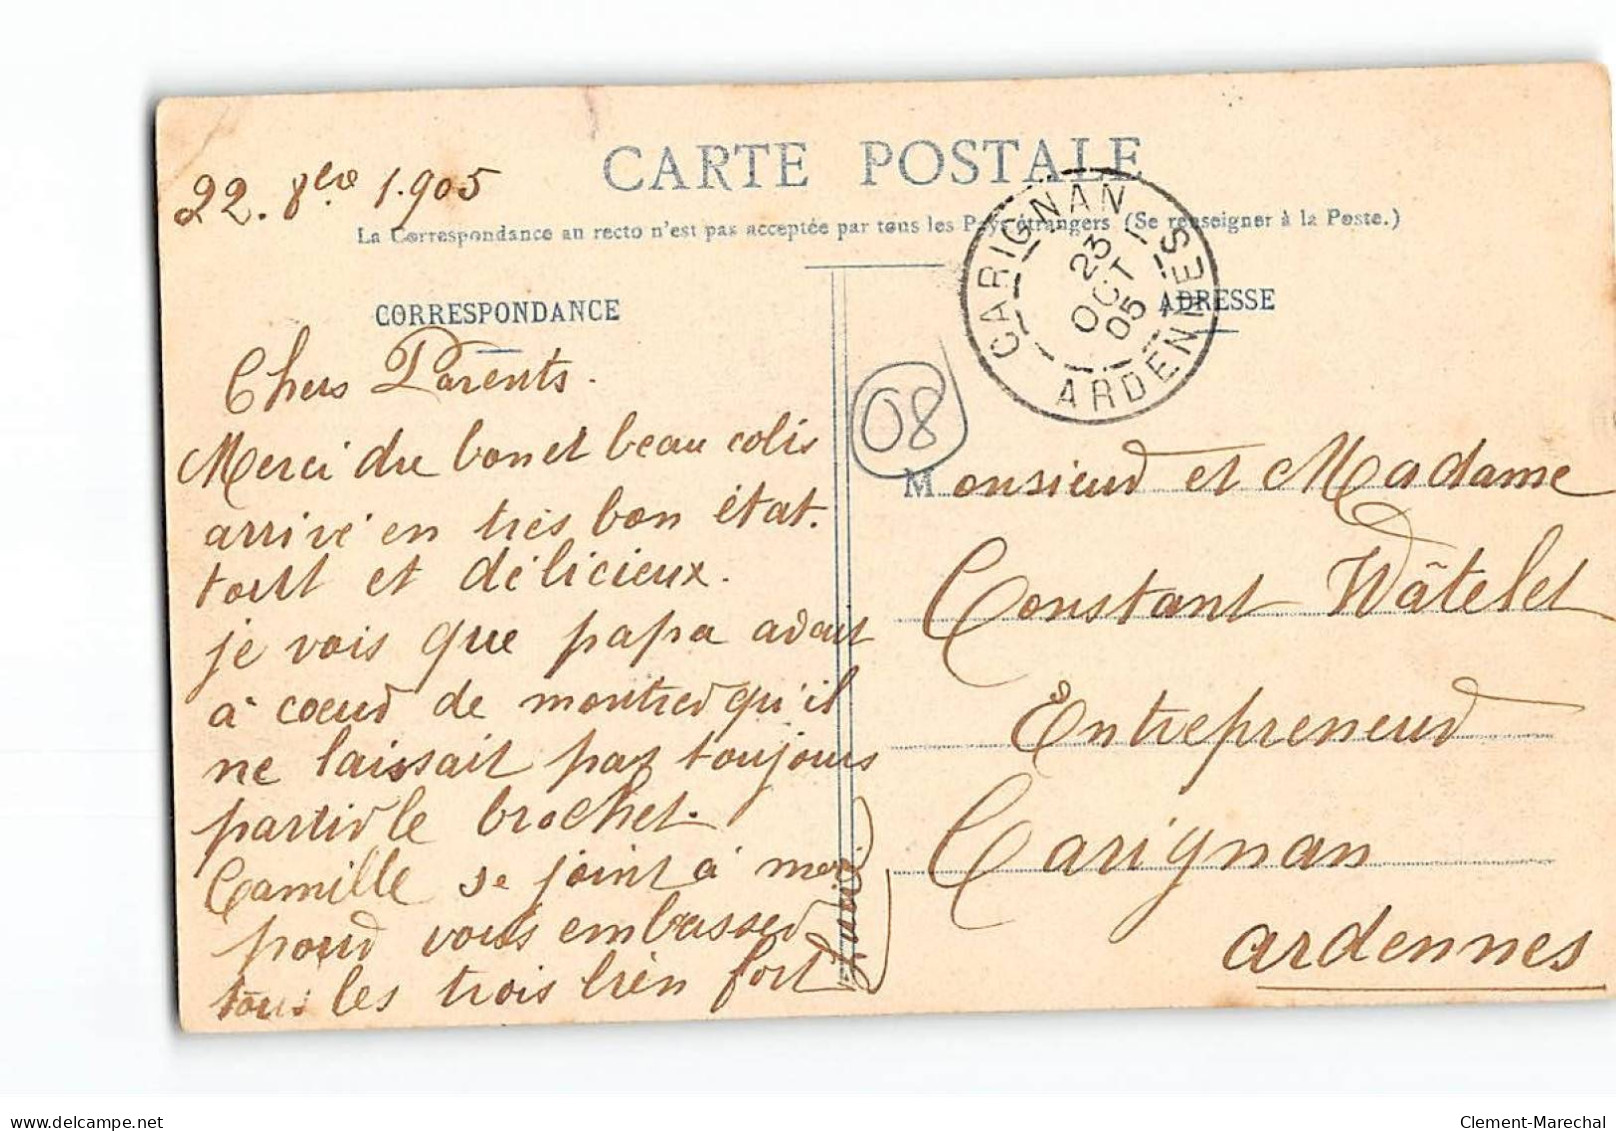 22. 8bre 1.905
CARTE POSTALE
La Correspondance au recto n'est pas acceptée par tous les Pays étrangers (Se renseigner à la Poste.)
CORRESPONDANCE
Chers Parents.
Merci du bon et beau colis
arrivé en très bon état.
tout et délicieux.
je vois que papa avait
à coeur de montrer qu'il
ne laissait pas toujours
partir le brochet.
Camille se joint à moi
pour vous embrasser
tous les trois bien fort
CARIGNAN
23
OCT
05
ARDENNES
ADRESSE
08
Monsieur et Madame
Constant Wâtelet
Entrepreneur
Carignan
ardennes
delcampe.net
Clement-Marechal